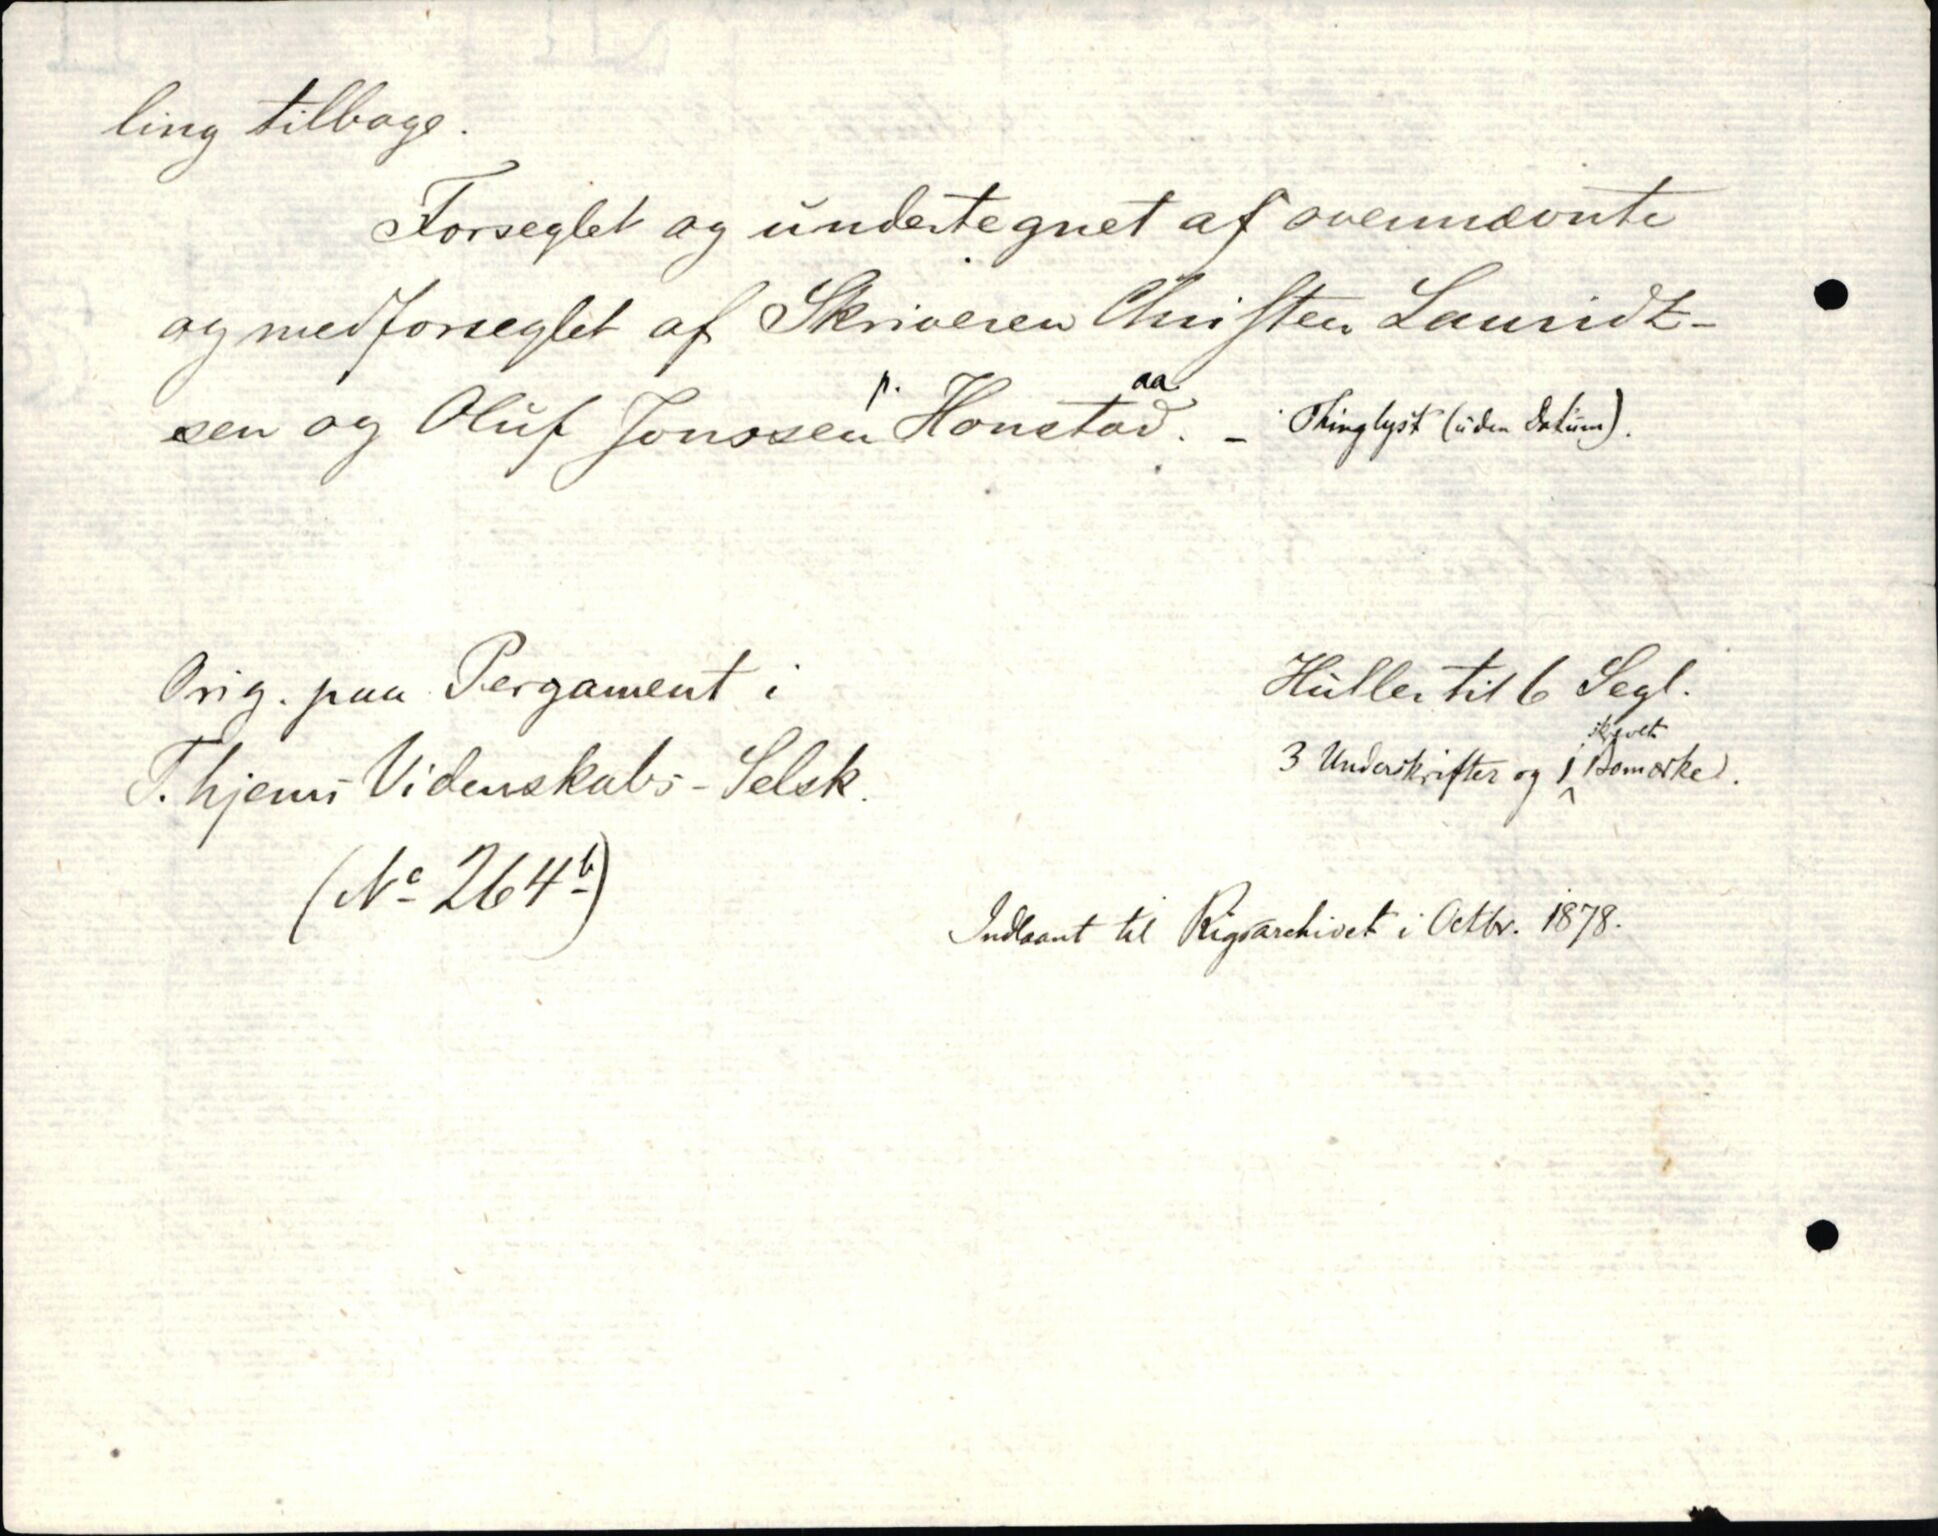 ling tilbage.
Forseglet og undertegnet af ovennævnte
og medforseglet af Skriveren Christen Lauridz-
sen og Oluf Jonssen p. Honstad. aa - Thinglyst (uden Datum).
Orig. paa Pergament i
T.hjems Videnskabs-Selsk.
(No 264b)
Huller til 6 Segl.
3 Underskrifter og 1 skrevet Bomærke).
Indlaant til Rigsarchivet i Octbr. 1878.